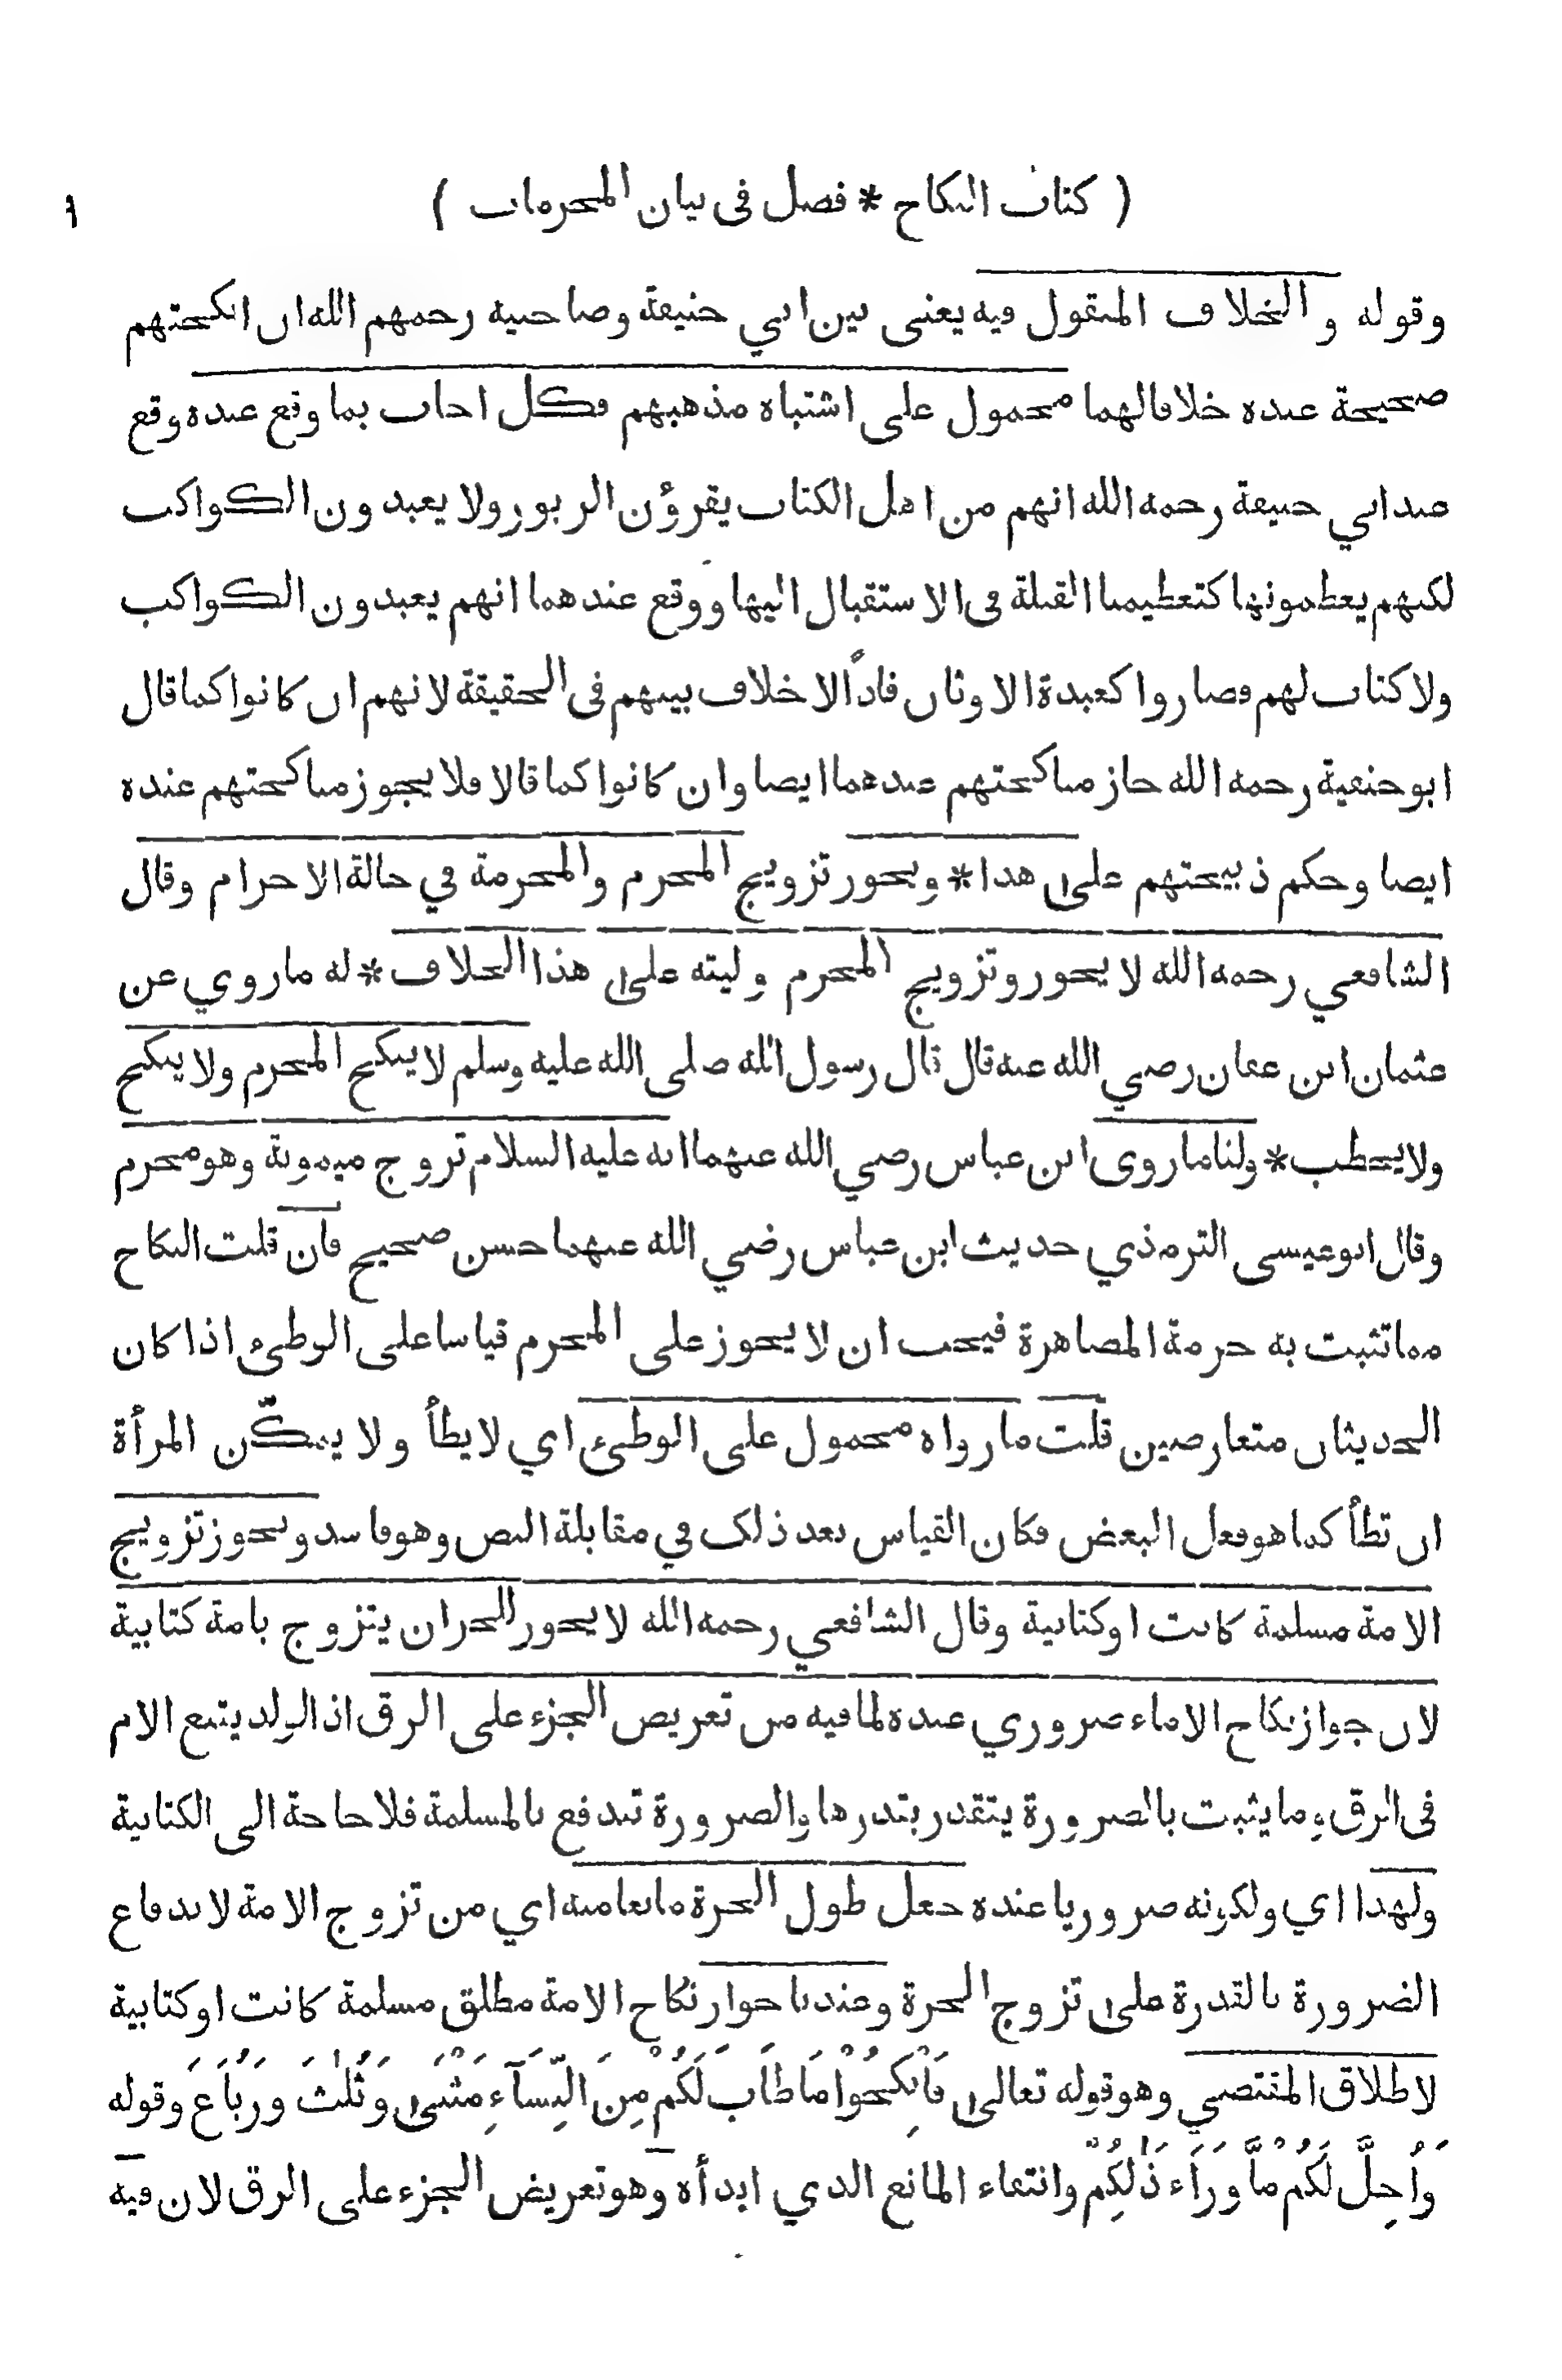 ( كتاب النكاح * فصل في بيان المحرمات ) ٩
وقوله والخلاف المنقول فيه يعنى بين ابي حنيفة وصاحبيه رحمهم الله ان انكحتهم
صحيحة عنده خلافا لهما محمول على اشتباه مذهبهم فكل اجاب بما وقع عنده وقع
عند ابي حنيفة رحمه الله انهم من اهل الكتاب يقرؤن الزبور ولا يعبدون الكواكب
لكنهم يعظمونها كتعظيمنا القبلة في الاستقبال اليها ووقع عندهما انهم يعبدون الكواكب
ولا كتاب لهم فصاروا كعبدة الاوثان فاذًا لا خلاف بينهم فى الحقيقة لانهم ان كانوا كما قال
ابو حنيفة رحمه الله جاز مناكحتهم عندهما ايضا وان كانوا كما قالا فلا يجوز مناكحتهم عنده
ايضا وحكم ذبيحتهم على هذا * ويجوز تزويج المحرم والمحرمة في حالة الاحرام وقال
الشافعي رحمه الله لا يجوز وتزويج المحرم وليته على هذا الخلاف * له ما روي عن
عثمان ابن عفان رضي الله عنه قال قال رسول الله صلى الله عليه وسلم لا ينكح المحرم ولا ينكح
ولا يخطب * ولنا ما روى ابن عباس رضي الله عنهما انه عليه السلام تزوج ميمونة وهو محرم
وقال ابو عيسى الترمذي حديث ابن عباس رضي الله عنهما حسن صحيح فان قلت النكاح
مما تثبت به حرمة المصاهرة فيجب ان لا يجوز على المحرم قياسا على الوطئ اذا كان
الحديثان متعارضين قلت ما رواه محمول على الوطئ اي لا يطأ ولا يمكّن المرأة
ان تطأ كما هو فعل البعض فكان القياس بعد ذلك في مقابلة النص وهو فاسد ويجوز تزويج
الامة مسلمة كانت او كتابية وقال الشافعي رحمه الله لا يجوز للحر ان يتزوج بامة كتابية
لان جواز نكاح الاماء ضروري عنده لما فيه من تعريض الجزء على الرق اذ الولد يتبع الام
فى الرق وما يثبت بالضرورة يتقدر بقدرها والضرورة تندفع بالمسلمة فلا حاجة الى الكتابية
ولهذا اي ولكونه ضروريا عنده جعل طول الحرة مانعا منه اي من تزوج الامة لاندفاع
الضرورة بالقدرة على تزوج الحرة وعندنا جواز نكاح الامة مطلق مسلمة كانت او كتابية
لاطلاق المقتضي وهو قوله تعالى فَانْكِحُوْا مَا طَابَ لَكُمْ مِنَ النِّسَآءِ مَثْنَى وَثُلٰثَ وَرُبَاعَ وقوله
وَاُحِلَّ لَكُمْ مَّا وَرَآءَ ذٰلِكُمْ وانتفاء المانع الذي ابدأه وهو تعريض الجزء على الرق لان فيه